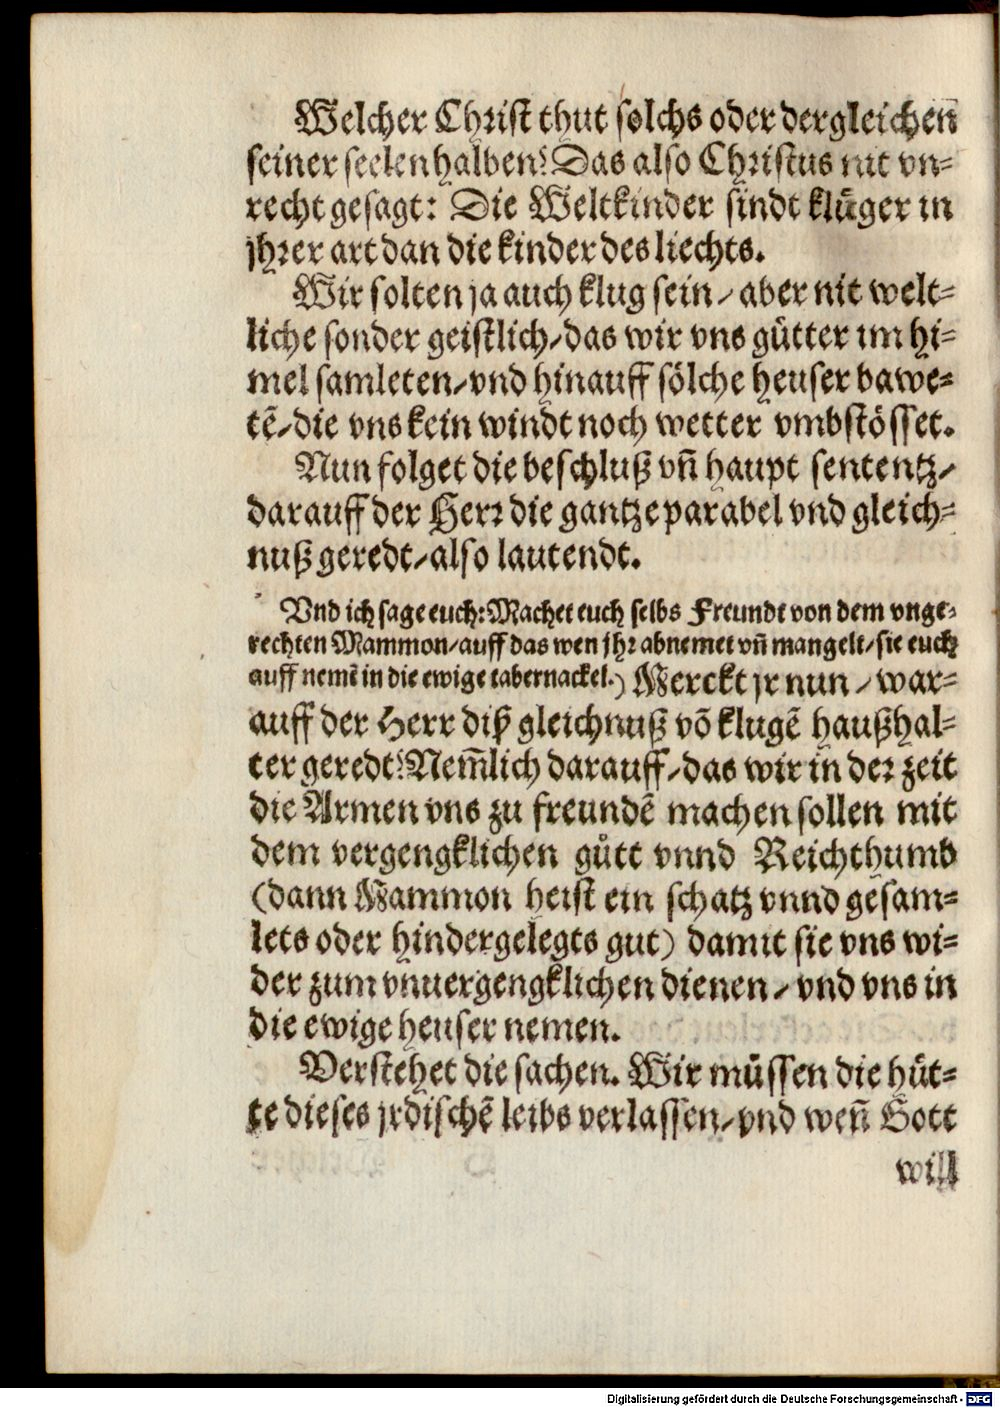 Welcher Christ thut solchs oder dergleichen̄
seiner seelen halben? Das also Christus nit vn-
recht gesagt: Die Weltkinder sindt klüger in
jhrer art dan die kinder des liechts.
Wir solten ja auch klug sein / aber nit welt-
liche sonder geistlich / das wir vns gütter im hi-
mel samleten / vnd hinauff sölche heuser bawe-
tē / die vns kein windt noch wetter vmbstösset.
Nun folget die beschluß vñ haupt sententz /
darauff der Herr die gantze parabel vnd gleich-
nuß geredt / also lautendt.
Vnd ich sage euch: Machet euch selbs Freundt von dem vnge-
rechten Mammon / auff das wen jhr abnemet vñ mangelt / sie euch
auff nemē in die ewige tabernackel.) Merckt jr nun / war-
auff der Herr diß gleichnuß vō klugē haußhal-
ter geredt? Nem̄lich darauff / das wir in der zeit
die Armen vns zu freundē machen sollen mit
dem vergengklichen gůtt vnnd Reichthumb
(dann Mammon heist ein schatz vnnd gesam-
lets oder hindergelegts gut) damit sie vns wi-
der zum vnuergengklichen dienen / vnd vns in
die ewige heuser nemen.
Verstehet die sachen. Wir müssen die hüt-
te dieses jrdischē leibs verlassen / vnd weñ Gott
will
Digitalisierung gefördert durch die Deutsche Forschungsgemeinschaft - DFG